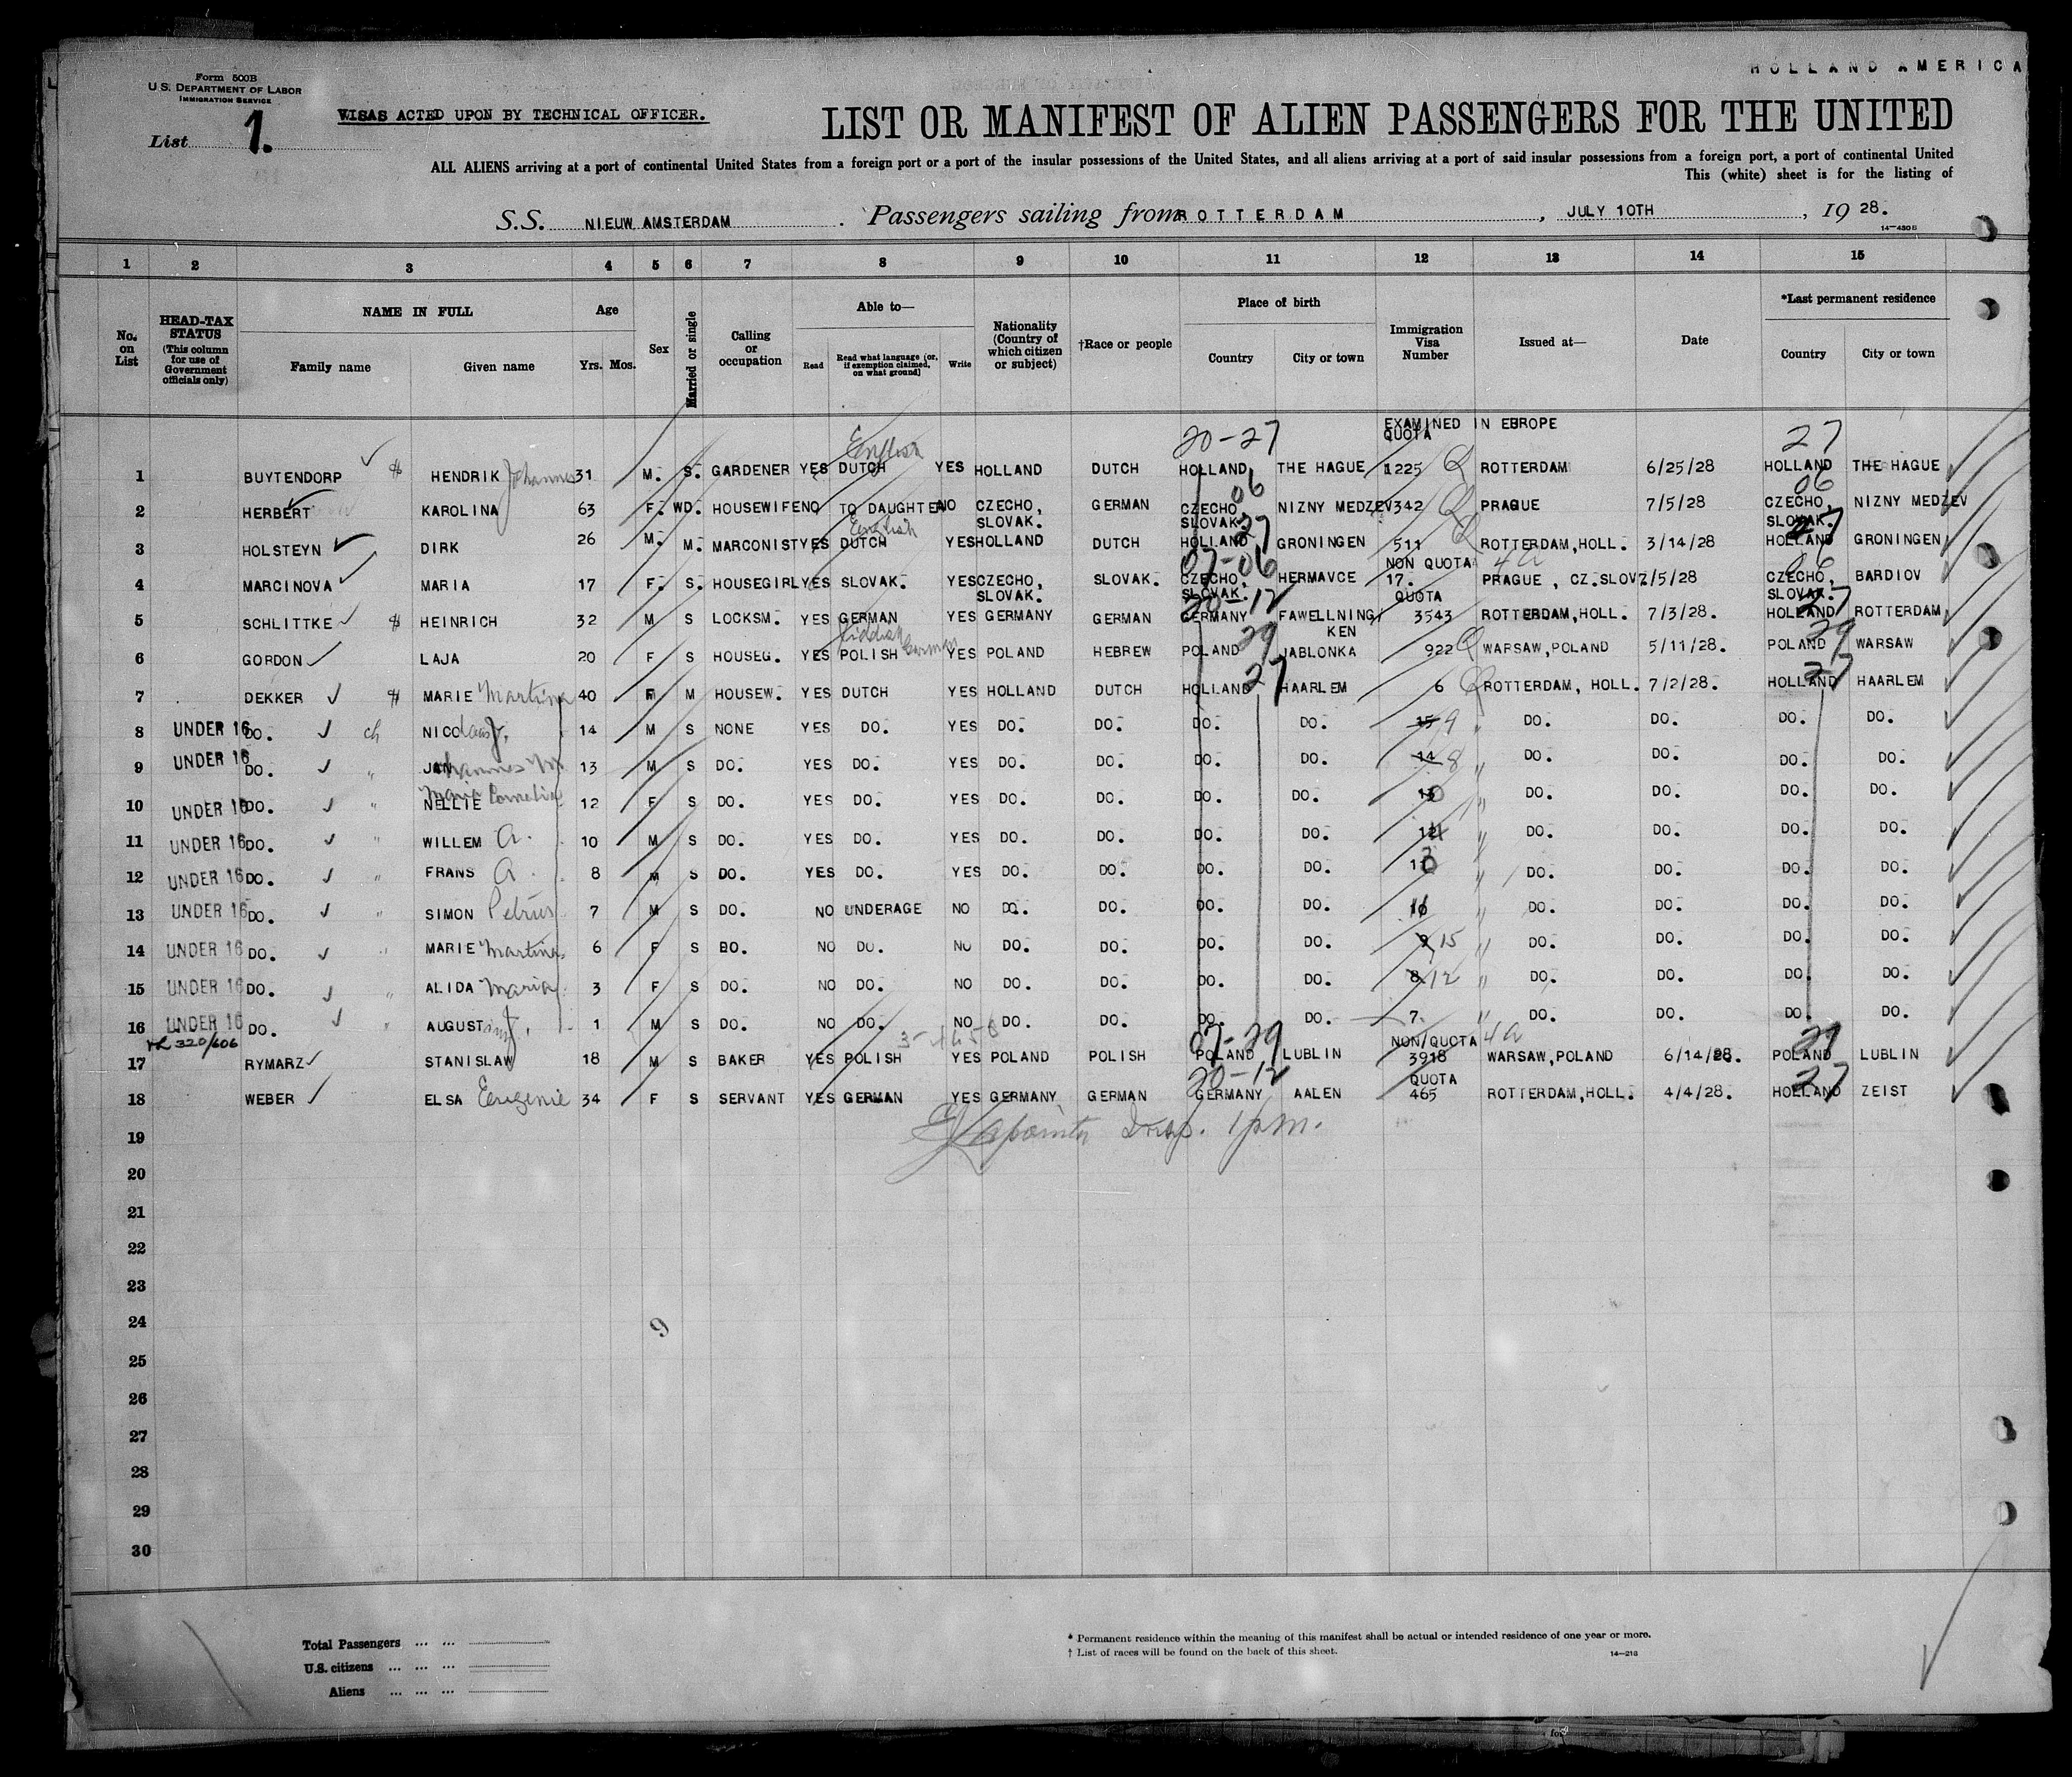 HOLLAND AMERICA
Form 500B
U.S. DEPARTMENT OF LABOR
IMMIGRATION SERVICE
VISAS ACTED UPON BY TECHNICAL OFFICER.
List 1.
LIST OR MANIFEST OF ALIEN PASSENGERS FOR THE UNITED
ALL ALIENS arriving at a port of continental United States from a foreign port or a port of the insular possessions of the United States, and all aliens arriving at a port of said insular possessions from a foreign port, a port of continental United
This (white) sheet is for the listing of
S.S. NIEUW AMSTERDAM . Passengers sailing from ROTTERDAM , JULY 10TH , 19 28.
14—480B
1 2 3 4 5 6 7 8 9 10 11 12 13 14 15
No. on List
HEAD-TAX STATUS (This column for use of Government officials only)
NAME IN FULL
Family name Given name
Age
Yrs. Mos.
Sex
Married or single
Calling or occupation
Able to—
Read Read what language (or, if exemption claimed, on what ground) Write
Nationality (Country of which citizen or subject)
†Race or people
Place of birth
Country City or town
Immigration Visa Number
Issued at—
Date
*Last permanent residence
Country City or town
EXAMINED IN EUROPE
20-27 QUOTA 27
English
1 BUYTENDORP HENDRIK Johannes 31 M. S. GARDENER YES DUTCH YES HOLLAND DUTCH HOLLAND THE HAGUE 1225 Q ROTTERDAM 6/25/28 HOLLAND THE HAGUE
06 06
2 HERBERT KAROLINA 63 F. WD. HOUSEWIFE NO TO DAUGHTER NO CZECHO, SLOVAK. GERMAN CZECHO, SLOVAK. NIZNY MEDZEV 342 Q PRAGUE 7/5/28 CZECHO, SLOVAK. NIZNY MEDZEV
English 27 27
3 HOLSTEYN DIRK 26 M. M. MARCONIST YES DUTCH YES HOLLAND DUTCH HOLLAND GRONINGEN 511 Q ROTTERDAM, HOLL. 3/14/28 HOLLAND GRONINGEN
07-06 NON QUOTA 4a 06
4 MARCINOVA MARIA 17 F. S. HOUSEGIRL YES SLOVAK. YES CZECHO, SLOVAK. SLOVAK. CZECHO, SLOVAK. HERMAVCE 17. PRAGUE , CZ.SLOV 7/5/28 CZECHO, SLOVAK. BARDIOV
20-12 QUOTA 27
5 SCHLITTKE HEINRICH 32 M S LOCKSM. YES GERMAN YES GERMANY GERMAN GERMANY FAWELLNINGKEN 3543 ROTTERDAM, HOLL. 7/3/28. HOLLAND ROTTERDAM
Yiddish German 29 29
6 GORDON LAJA 20 F S HOUSEG. YES POLISH YES POLAND HEBREW POLAND JABLONKA 922 Q WARSAW, POLAND 5/11/28. POLAND WARSAW
27 27
7 DEKKER MARIE Martina 40 F M HOUSEW. YES DUTCH YES HOLLAND DUTCH HOLLAND HAARLEM 6 Q ROTTERDAM, HOLL. 7/2/28. HOLLAND HAARLEM
8 UNDER 16 DO. ch NICOlaas J. 14 M S NONE YES DO. YES DO. DO. DO. DO. 15 9 " DO. DO. DO. DO.
9 UNDER 16 DO. " JANhannes M 13 M S DO. YES DO. YES DO. DO. DO. DO. 14 8 " DO. DO. DO. DO.
Maria Cornelia
10 UNDER 16 DO. " NELLIE 12 F S DO. YES DO. YES DO. DO. DO. DO. 10 " DO. DO. DO. DO.
11 UNDER 16 DO. " WILLEM A. 10 M S DO. YES DO. YES DO. DO. DO. DO. " DO. DO. DO. DO.
12 UNDER 16 DO. " FRANS A. 8 M S DO. YES DO. YES DO. DO. DO. DO. " DO. DO. DO. DO.
13 UNDER 16 DO. " SIMON Petrus 7 M S DO. NO UNDERAGE NO DO. DO. DO. DO. " DO. DO. DO. DO.
14 UNDER 16 DO. " MARIE Martina 6 F S BO. NO DO. NO DO. DO. DO. DO. 9 15 " DO. DO. DO. DO.
15 UNDER 16 DO. " ALIDA Maria 3 F S DO. NO DO. NO DO. DO. DO. DO. 8 12 " DO. DO. DO. DO.
16 UNDER 16 DO. " AUGUST 1 M S DO. NO DO. NO DO. DO. DO. DO. 7. " DO. DO. DO. DO.
320/606 07-29 NON/QUOTA 4a 29
17 RYMARZ STANISLAW 18 M S BAKER YES POLISH YES POLAND POLISH POLAND LUBLIN 3918 WARSAW, POLAND 6/14/28. POLAND LUBLIN
20-12 QUOTA 27
18 WEBER ELSA Eugenie 34 F S SERVANT YES GERMAN YES GERMANY GERMAN GERMANY AALEN 465 ROTTERDAM, HOLL. 4/4/28. HOLLAND ZEIST
19 Insp. 1pm.
20
21
22
23
24 9
25
26
27
28
29
30
Total Passengers ... ...
U.S. citizens ... ... ...
Aliens ... ... ...
* Permanent residence within the meaning of this manifest shall be actual or intended residence of one year or more.
† List of races will be found on the back of this sheet.
14—216